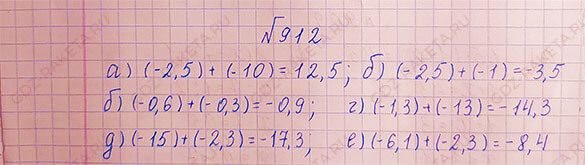 №912
а) (-2,5) + (-10) = 12,5; б) (-2,5) + (-1) = -3,5
б) (-0,6) + (-0,3) = -0,9; г) (-1,3) + (-13) = -14,3
д) (-15) + (-2,3) = -17,3; е) (-6,1) + (-2,3) = -8,4